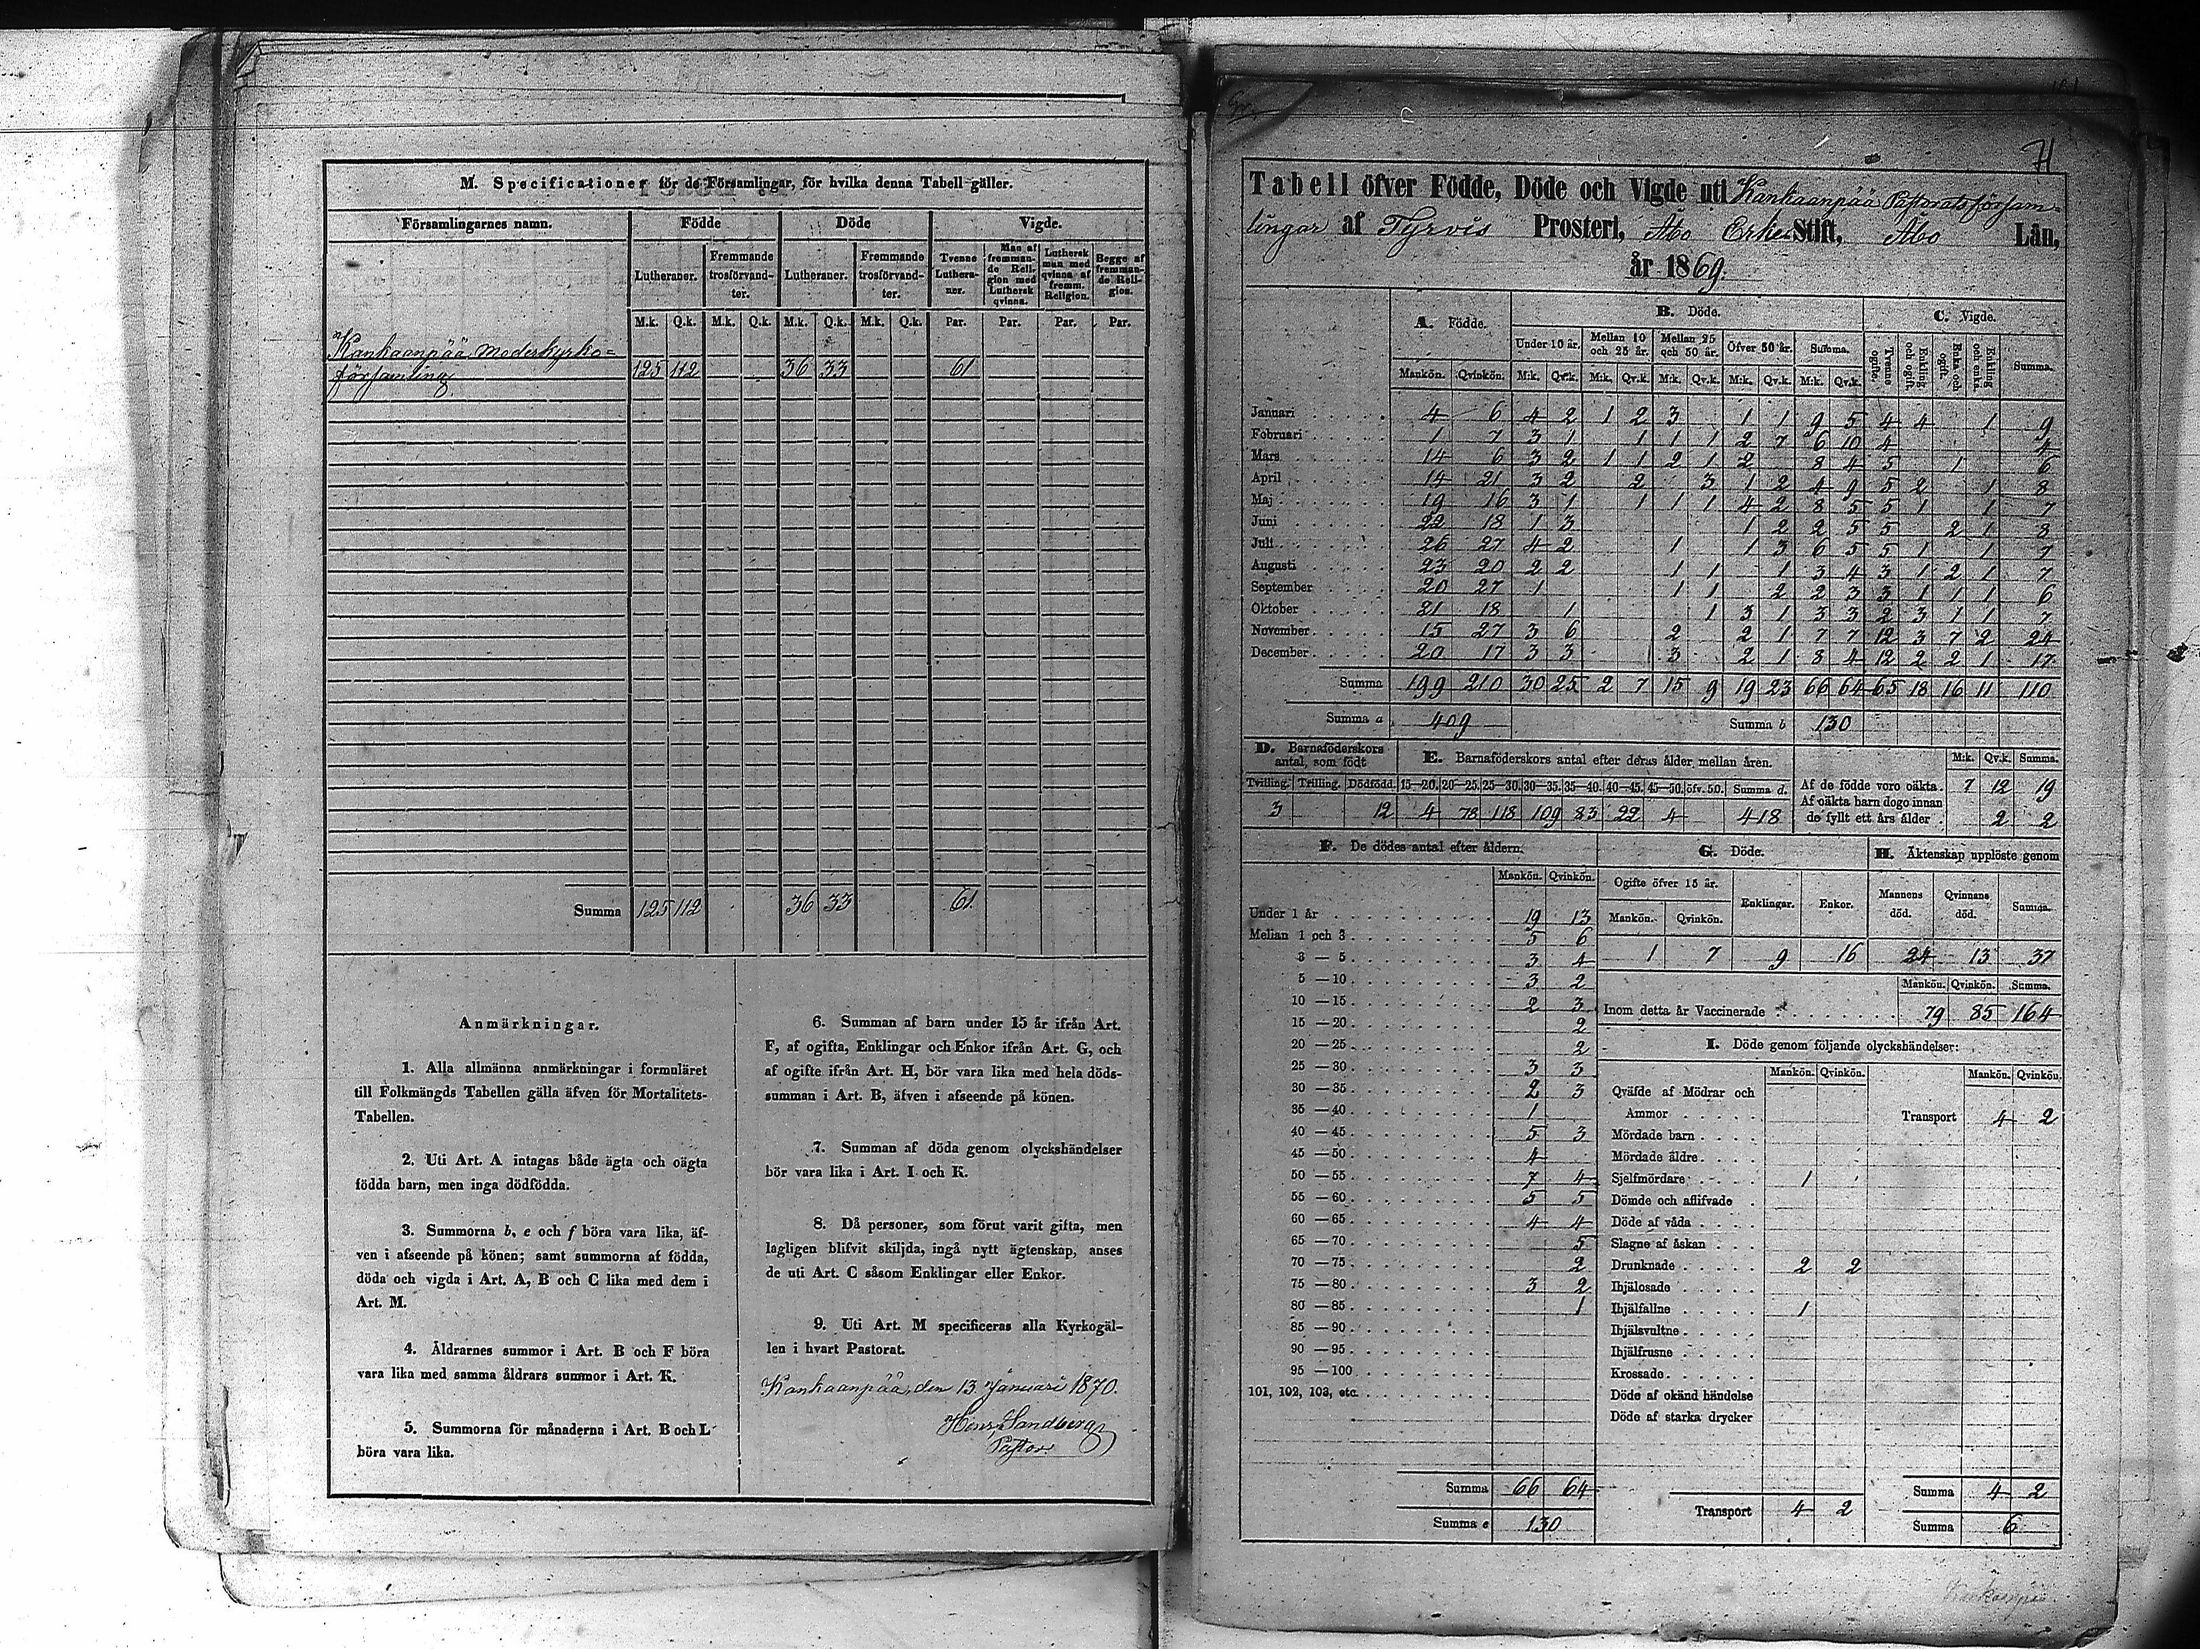 M. Specificationer för de Församlingar, för hvilka denna Tabell gäller.
Församlingarnes namn. Födde Döde Vigde.
Lutheraner. Fremmande trosförvandter. Lutheraner. Fremmande trosförvandter. Tvenne Lutheraner. Man af fremmande Religion med Luthersk qvinna. Luthersk man med qvinna af fremm. Religion. Begge af fremmande Religion.
M.k. Q.k. M.k. Q.k. M.k. Q.k. M.k. Q.k. Par. Par. Par. Par.
Kankaanpää Moderkyrko=
församling 125 112 36 33 61
Summa 125 112 36 33 61
Anmärkningar.
1. Alla allmänna anmärkningar i formuläret
till Folkmängds Tabellen gälla äfven för Mortalitets-
Tabellen.
2. Uti Art. A intagas både ägta och oägta
födda barn, men inga dödfödda.
3. Summorna b, e och f böra vara lika, äf-
ven i afseende på könen; samt summorna af födda,
döda och vigda i Art. A, B och C lika med dem i
Art. M.
4. Åldrarnes summor i Art. B och F böra
vara lika med samma åldrars summor i Art. K.
5. Summorna för månaderna i Art. B och L
böra vara lika.
6. Summan af barn under 15 år ifrån Art.
F, af ogifta, Enklingar och Enkor ifrån Art. G, och
af ogifte ifrån Art. H, bör vara lika med hela döds-
summan i Art. B, äfven i afseende på könen.
7. Summan af döda genom olyckshändelser
bör vara lika i Art. I och K.
8. Då personer, som förut varit gifta, men
lagligen blifvit skiljda, ingå nytt ägtenskap, anses
de uti Art. C såsom Enklingar eller Enkor.
9. Uti Art. M specificeras alla Kyrkogäl-
len i hvart Pastorat.
Kankaanpää, den 13 Januari 1870.
Henr. Sandberg
Pastor.
71
Tabell öfver Födde, Döde och Vigde uti Kankaanpää Pastorats försam-
lingar af Tyrvis Prosteri, Åbo Erke Stift, Åbo Län,
år 1869.
A. Födde. B. Döde. C. Vigde.
Under 10 år. Mellan 10 och 25 år. Mellan 25 och 50 år. Öfver 50 år. Summa. Tvenne ogifte. Enkling och ogift. Enka och ogift. Enkling och enka. Summa.
Mankön. Qvinkön. M.k. Qv.k. M.k. Qv.k. M.k. Qv.k. M.k. Qv.k. M.k. Qv.k.
Januari 4 6 4 2 1 2 3 1 1 9 5 4 4 1 9
Februari 1 7 3 1 1 1 1 2 7 6 10 4 4
Mars 14 6 3 2 1 1 2 1 2 8 4 5 1 6
April 14 21 3 2 2 3 1 2 4 9 5 2 1 8
Maj 19 16 3 1 1 1 1 4 2 8 5 5 1 1 7
Juni 22 18 1 3 1 2 2 5 5 2 1 8
Juli 26 27 4 2 1 1 3 6 5 5 1 1 7
Augusti 23 20 2 2 1 1 1 3 4 3 1 2 1 7
September 20 27 1 1 1 2 2 3 3 1 1 1 6
Oktober 21 18 1 1 3 1 3 3 2 3 1 1 7
November 15 27 3 6 2 2 1 7 7 12 3 7 2 24
December 20 17 3 3 3 2 1 8 4 12 2 2 1 17
Summa 199 210 30 25 2 7 15 9 19 23 66 64 65 18 16 11 110
Summa a 409 Summa b 130
D. Barnaföderskors antal, som födt E. Barnaföderskors antal efter deras ålder mellan åren. M:k. Qv.k. Summa.
Tvilling. Trilling. Dödfödd. 15—20. 20—25. 25—30. 30—35. 35—40. 40—45. 45—50. öfv. 50. Summa d.
3 12 4 78 118 109 83 22 4 418
Af de födde voro oäkta. 7 12 19
Af oäkta barn dogo innan
de fyllt ett års ålder 2 2
F. De dödes antal efter åldern.
Mankön. Qvinkön.
Under 1 år 19 13
Mellan 1 och 3 5 6
3 — 5 3 4
5 — 10 3 2
10 — 15 2 3
15 — 20 2
20 — 25 2
25 — 30 3 3
30 — 35 2 3
35 — 40 1
40 — 45 5 3
45 — 50 4
50 — 55 7 4
55 — 60 5 5
60 — 65 4 4
65 — 70 5
70 — 75 2
75 — 80 3 2
80 — 85 1
85 — 90
90 — 95
95 — 100
101, 102, 103, etc.
Summa 66 64
Summa e 130
G. Döde.
Ogifte öfver 15 år. Enklingar. Enkor.
Mankön. Qvinkön.
1 7 9 16
H. Äktenskap upplöste genom
Mannens död. Qvinnans död. Summa.
24 13 37
Mankön. Qvinkön. Summa.
Inom detta år Vaccinerade 79 85 164
I. Döde genom följande olyckshändelser:
Mankön. Qvinkön. Mankön. Qvinkön.
Qväfde af Mödrar och
Ammor
Transport 4 2
Mördade barn
Mördade äldre
Sjelfmördare 1
Dömde och aflifvade
Döde af våda
Slagne af åskan
Drunknade 2 2
Ihjälosade
Ihjälfallne 1
Ihjälsvultne
Ihjälfrusne
Krossade
Döde af okänd händelse
Döde af starka drycker
Transport 4 2
Summa 4 2
Summa 6
Kankaanpää